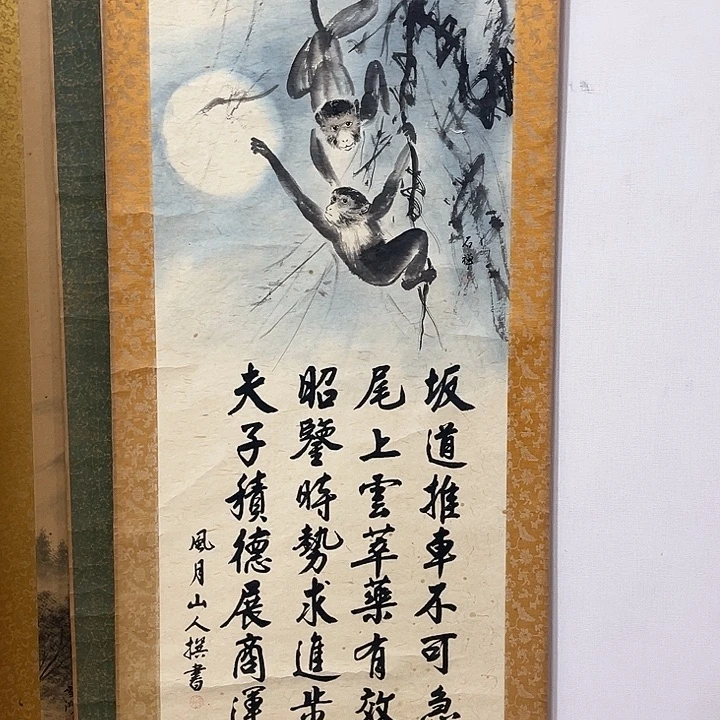 坂道推車不可急
尾上雲萃藥有效
昭鑒時勢求進步
夫子積德展商運
風月山人撰書